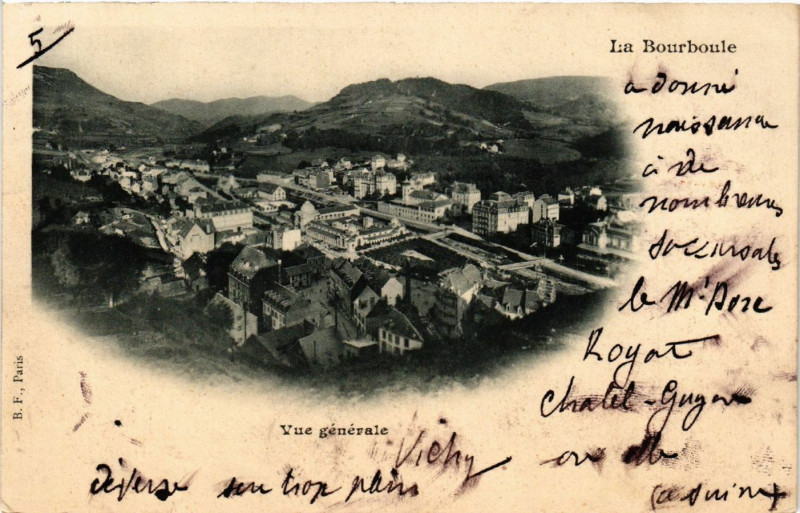 5
La Bourboule
a donné
naissance
à de
nombreuses
succursales
le Mt Dore
Royat
Chatel-Guyon
Vichy où elle
déverse son trop plein
(à suivre)
Vue générale
B. F., Paris